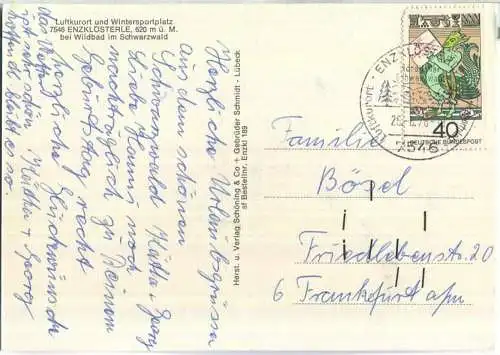 Luftkurort und Wintersportplatz
7546 ENZKLÖSTERLE, 620 m ü. M.
bei Wildbad im Schwarzwald
Herzliche Urlaubsgrüsse
aus dem schönen
Schwarzwald Käthe + Georg
Liebe noch
nachträglich zu Deinem
Geburtstag recht
herzliche Glückwünsche
das Wetter Käthe + Georg
ist sehr schön
hoffentl. bleibt es so.
Herst. u. Verlag Schöning & Co + Gebrüder Schmidt - Lübeck
Bestellnr. Enzkl 189
ENZKLÖSTERLE
Luftkurort
7546
40
DEUTSCHE BUNDESPOST
Familie
Bösel
Friedlebenstr. 20
6 Frankfurt a/m